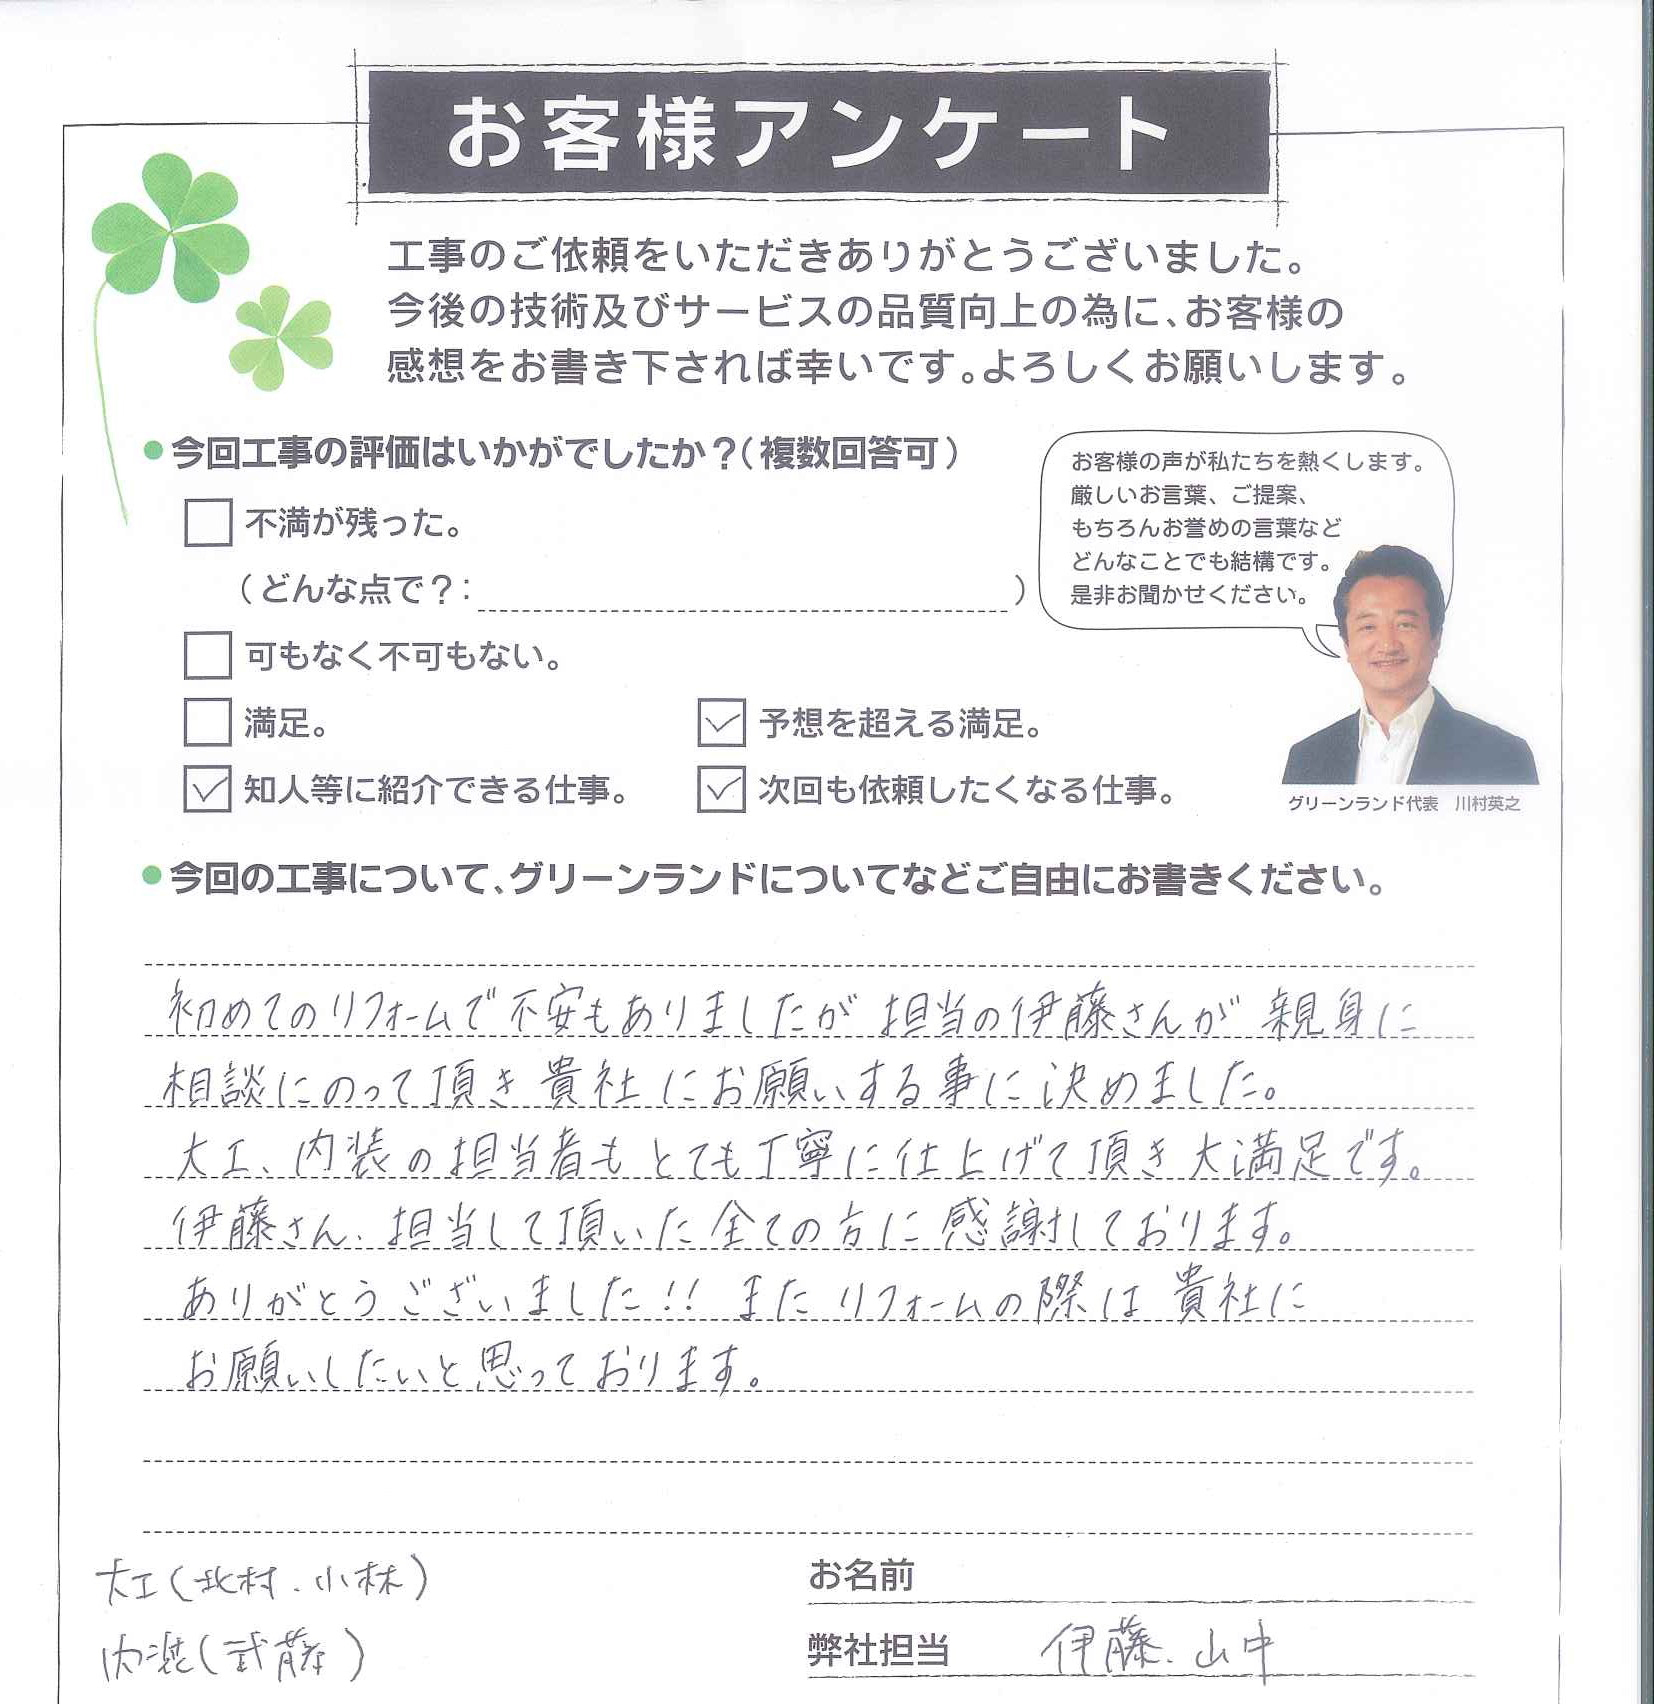 お客様アンケート
工事のご依頼をいただきありがとうございました。
今後の技術及びサービスの品質向上の為に、お客様の
感想をお書き下されば幸いです。よろしくお願いします。
●今回工事の評価はいかがでしたか？（複数回答可）
お客様の声が私たちを熱くします。
厳しいお言葉、ご提案、
もちろんお誉めの言葉など
どんなことでも結構です。
是非お聞かせください。
不満が残った。
（どんな点で？： ）
可もなく不可もない。
満足。
予想を超える満足。
知人等に紹介できる仕事。
次回も依頼したくなる仕事。
グリーンランド代表 川村英之
●今回の工事について、グリーンランドについてなどご自由にお書きください。
初めてのリフォームで不安もありましたが担当の伊藤さんが親身に
相談にのって頂き貴社にお願いする事に決めました。
大工、内装の担当者もとても丁寧に仕上げて頂き大満足です。
伊藤さん、担当して頂いた全ての方に感謝しております。
ありがとうございました!! またリフォームの際は貴社に
お願いしたいと思っております。
大工(北村、小林)
内装(武藤)
お名前
弊社担当 伊藤、山中